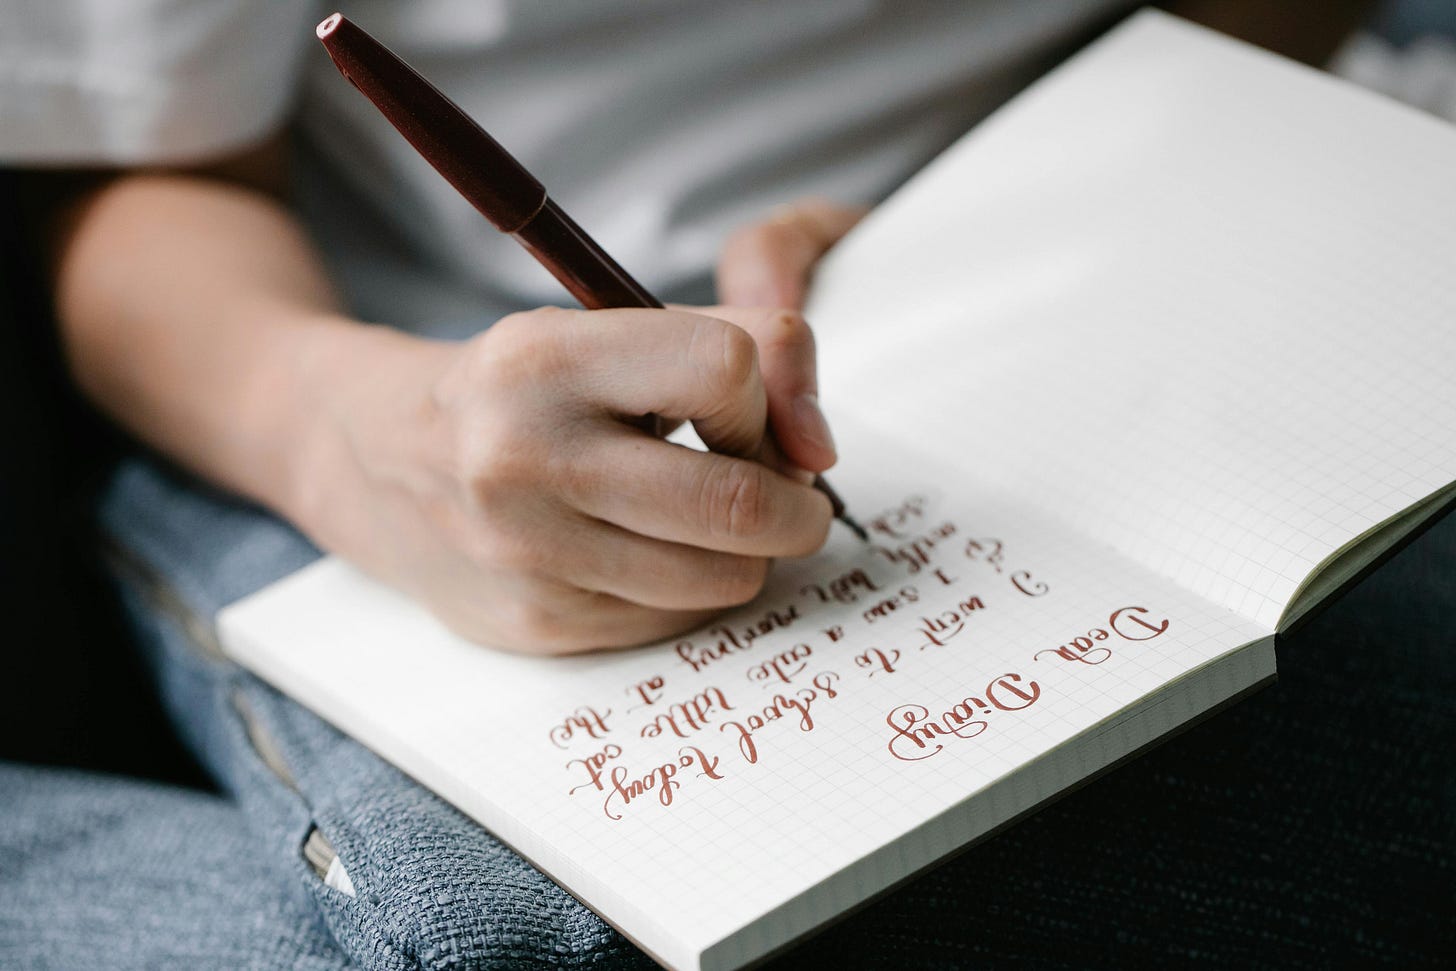 Dear Diary
I went to school today
I saw a cute little cat
morning at the
sch